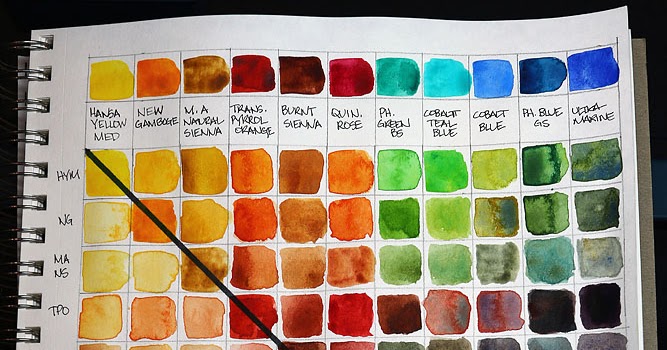 HANSA
YELLOW
MED
NEW
GAMBOGE
M.A
NATURAL
SIENNA
TRANS.
PYRROL
ORANGE
BURNT
SIENNA
QUIN.
ROSE
PH.
GREEN
BS
COBALT
TEAL
BLUE
COBALT
BLUE
PH. BLUE
GS
ULTRA-
MARINE
HYM
NG
MA
NS
TPO